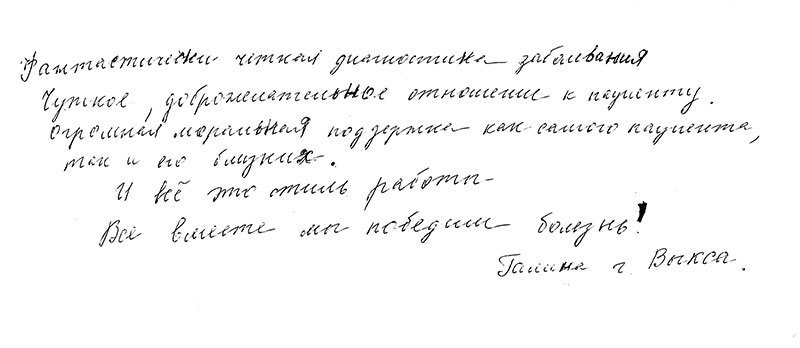 Фантастически чёткая диагностика заболевания
Чуткое, доброжелательное отношение к пациенту.
Огромная моральная поддержка как самого пациента,
так и его близких.
И всё это стиль работы –
Все вместе мы победили болезнь!
Галина г. Выкса.